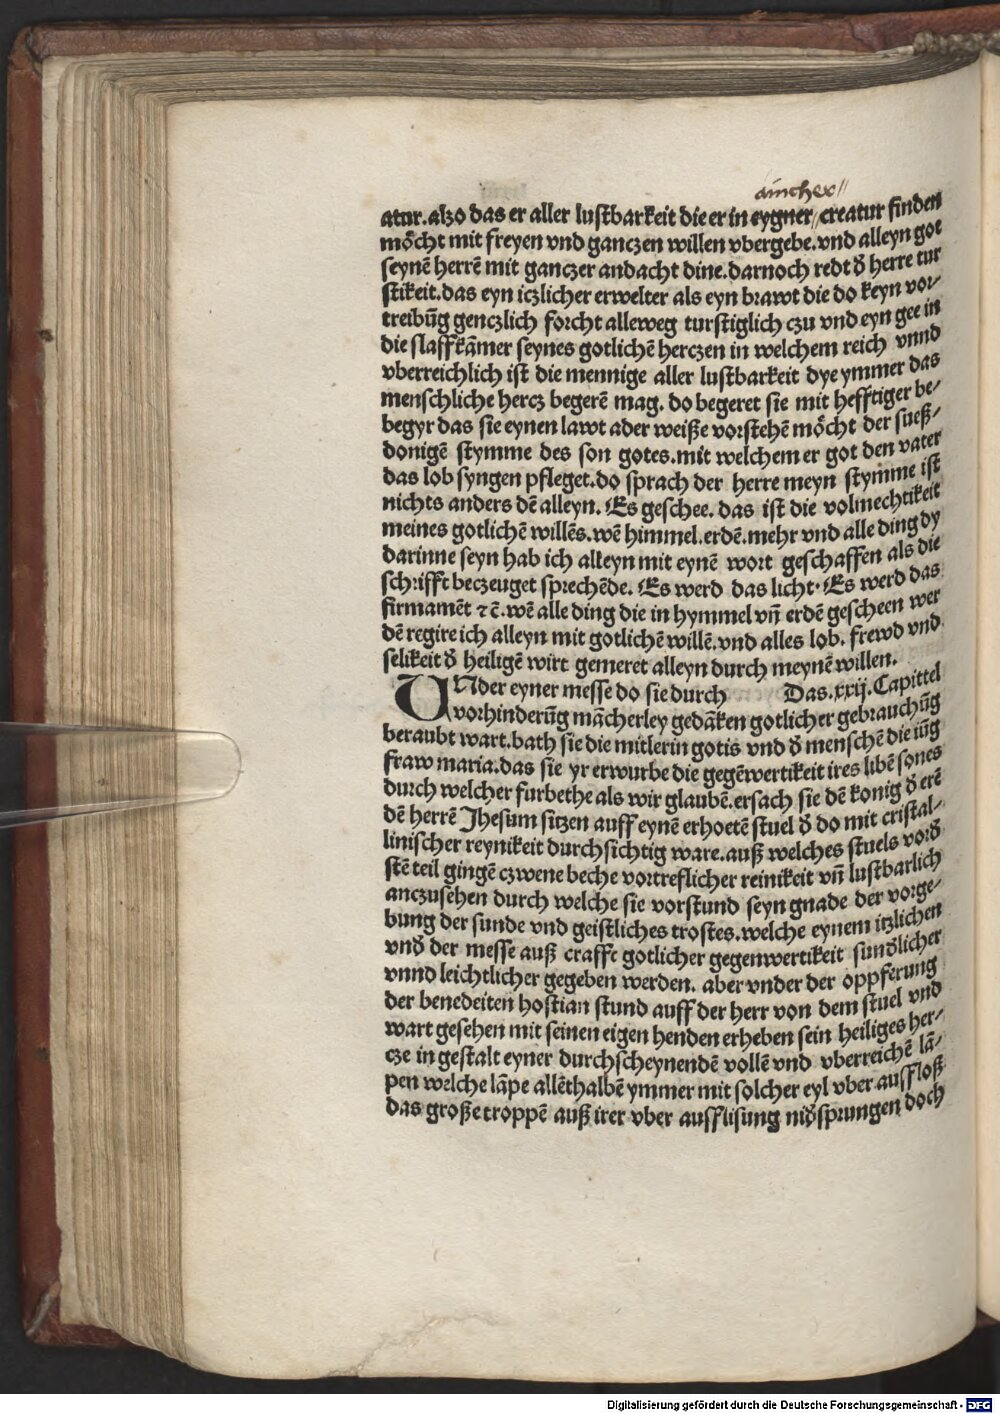 aincher//
atur. alzo das er aller lustbarkeit die er in eygner // creatur finden
möcht mit freyen vnd ganczen willen vbergebe. vnd alleyn got
seynē herrē mit ganczer andacht dine. darnoch redt d̕ herre tur
stikeit. das eyn iczlicher erwelter als eyn brawt die do keyn vor⸗
treibūg genczlich forcht alleweg turstiglich czu vnd eyn gee in
die slaffkāmer seynes gotlichē herczen in welchem reich vnnd
vberreichlich ist die mennige aller lustbarkeit dye ymmer das
menschliche hercz begerē mag. do begeret sie mit hefftiger be⸗
begyr das sie eynen lawt ader weiße vorstehē möcht der sueß⸗
donigē stymme des son gotes. mit welchem er got den vater
das lob syngen pfleget. do sprach der herre meyn stymme ist
nichts anders dē alleyn. Es geschee. das ist die volmechtikeit
meines gotlichē willēs. wē himmel. erdē. mehr vnd alle ding dy
darinne seyn hab ich alleyn mit eynē wort geschaffen als die
schrifft beczeuget sprechēde. Es werd das licht. Es werd das
firmamēt ⁊ c̄. wē alle ding die in hymmel vn̄ erdē gescheen wer
dē regire ich alleyn mit gotlichē willē. vnd alles lob. frewd vnd
selikeit d̕ heiligē wirt gemeret alleyn durch meynē willen.
VNder eyner messe do sie durch Das .xxij. Capittel
vorhinderūg mācherley gedāken gotlicher gebrauchūg
beraubt wart. bath sie die mitlerin gotis vnd d̕ menschē die iūg
fraw maria. das sie yr erwurbe die gegēwertikeit ires libē sones
durch welcher furbethe als wir glaubē. ersach sie dē konig d̕ erē
dē herrē Jhesum sitzen auff eynē erhoetē stuel d̕ do mit cristal⸗
linischer reynikeit durchsichtig ware. auß welches stuels vord̕
stē teil gingē czwene beche vortreflicher reinikeit vn̄ lustbarlich
anczusehen durch welche sie vorstund seyn gnade der vorge⸗
bung der sunde vnd geistliches trostes. welche eynem itzlichen
vnd̕ der messe auß crafft gotlicher gegenwertikeit sund̕licher
vnnd leichtlicher gegeben werden. aber vnder der oppferung
der benedeiten hostian stund auff der herr von dem stuel vnd
wart gesehen mit seinen eigen henden erheben sein heiliges her⸗
cze in gestalt eyner durchscheynendē vollē vnd vberreichē lā⸗
pen welche lāpe allēthalbē ymmer mit solcher eyl vber aufsloß
das große troppē auß irer vber aufflisung nid̕sprungen doch
Digitalisierung gefördert durch die Deutsche Forschungsgemeinschaft - DFG